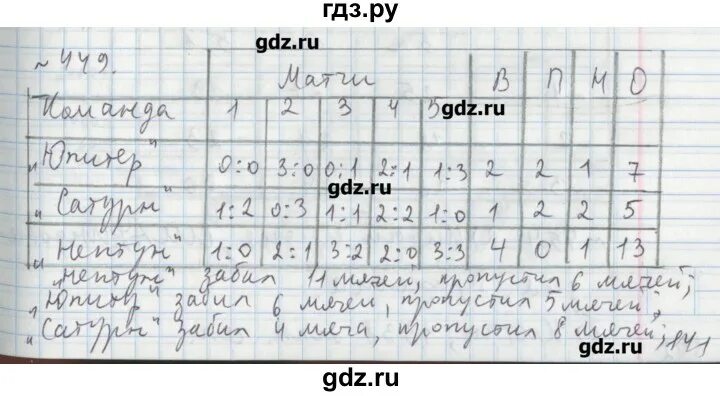 гдз.ру
gdz.ru
№ 449.
Матчи В П Н О
Команда 1 2 3 4 5 gdz.ru
"Юпитер" 0:0 3:0 0:1 2:1 1:3 2 2 1 7
gdz.ru
"Сатурн" 1:2 0:3 1:1 2:2 1:0 1 2 2 5
"Нептун" 1:0 2:1 3:2 2:0 3:3 4 0 1 13
"Нептун" забил 11 мячей, пропустил 6 мячей;
"Юпитер" забил 6 мячей, пропустил 5 мячей;
"Сатурн" забил 4 мяча, пропустил 8 мячей;
gdz.ru
gdz.ru